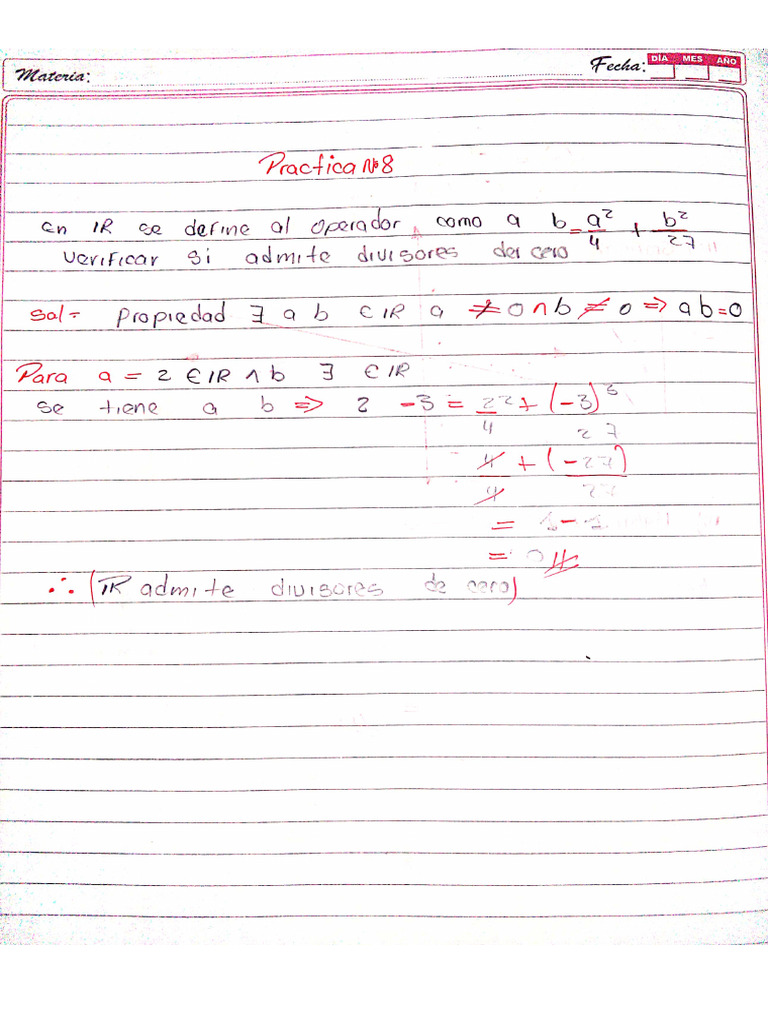 Materia:
Fecha: DÍA MES AÑO
Practica Nº8
En IR se define al operador como a b = a²/4 + b²/27
Verificar si admite divisores del cero
Sol= Propiedad ∃ a b ∈ IR a ≠ 0 ∧ b ≠ 0 ⇒ a b = 0
Para a = 2 ∈ IR ∧ b ∃ ∈ IR
se tiene a b ⇒ 2 -3 = 2²/4 + (-3)³/27
4/4 + (-27)/27
= 1 - 1
= 0//
∴ (IR admite divisores de cero)